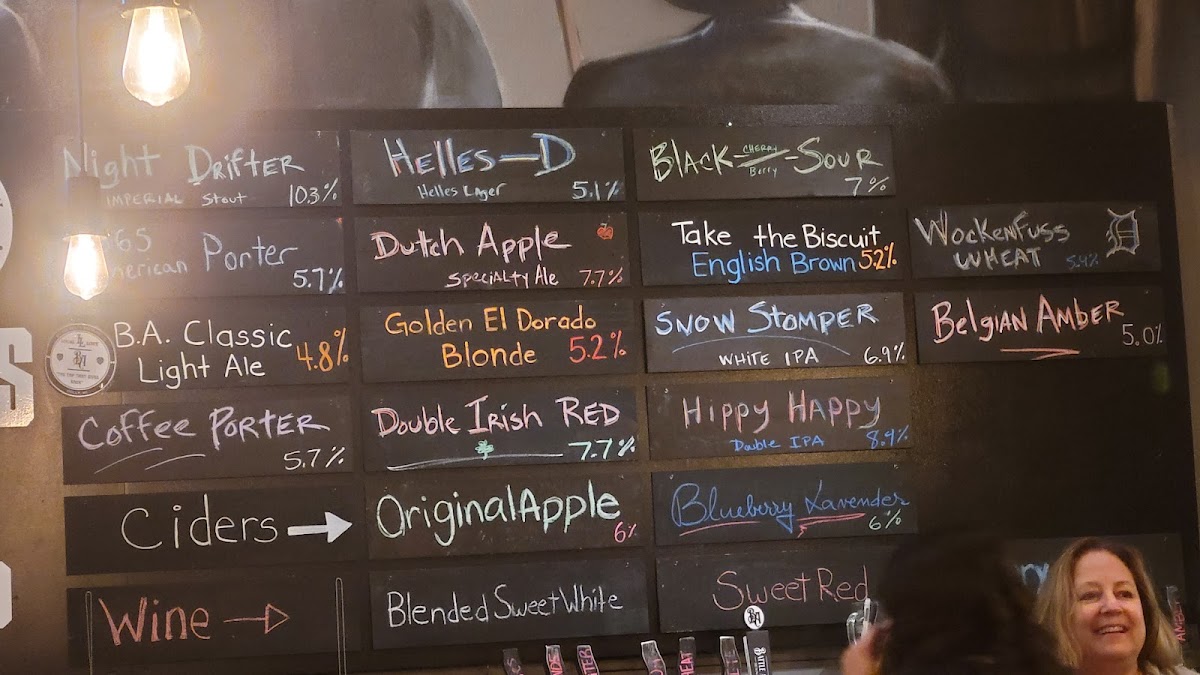 Night Drifter
Imperial Stout 10.3%
Helles-D
Helles Lager 5.1%
Black-Cherry Berry-Sour
7%
'65
American Porter
5.7%
Dutch Apple
Specialty Ale 7.7%
Take the Biscuit
English Brown 5.2%
Wockenfuss
Wheat 5.4%
D
B.A. Classic
Light Ale 4.8%
BA
Golden El Dorado
Blonde 5.2%
Snow Stomper
White IPA 6.9%
Belgian Amber
5.0%
Coffee Porter
5.7%
Double Irish Red
7.7%
Hippy Happy
Double IPA 8.9%
Ciders →
Original Apple
6%
Blueberry Lavender
6%
Wine →
Blended Sweet White
Sweet Red
BA